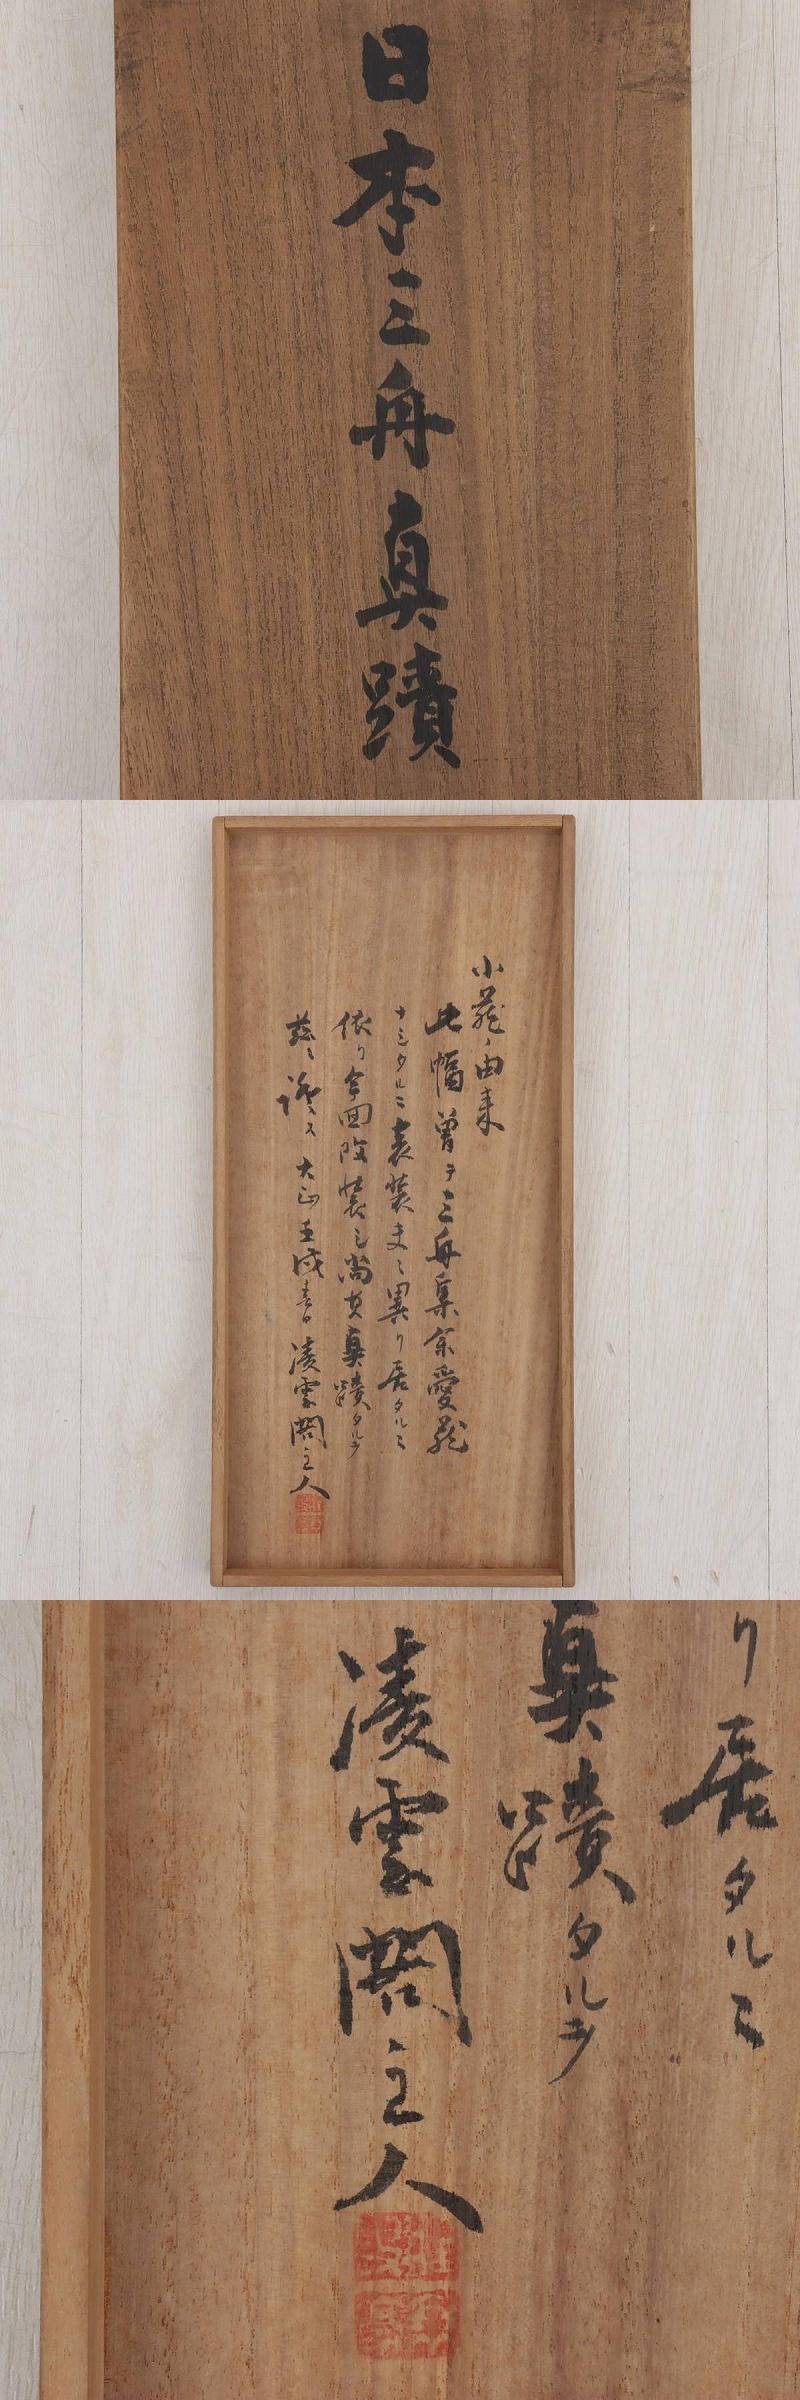 日本三舟真蹟
小蔵ノ由来
此幅曽テ三舟集余愛蔵
セシ タルニ表装夫々異リ居タルニ
依リ今回改装シ尚且真蹟タルヲ
茲ニ證ス 大正壬戌春日 凌雲閣主人
リ居タルニ
真蹟タルヲ
凌雲閣主人